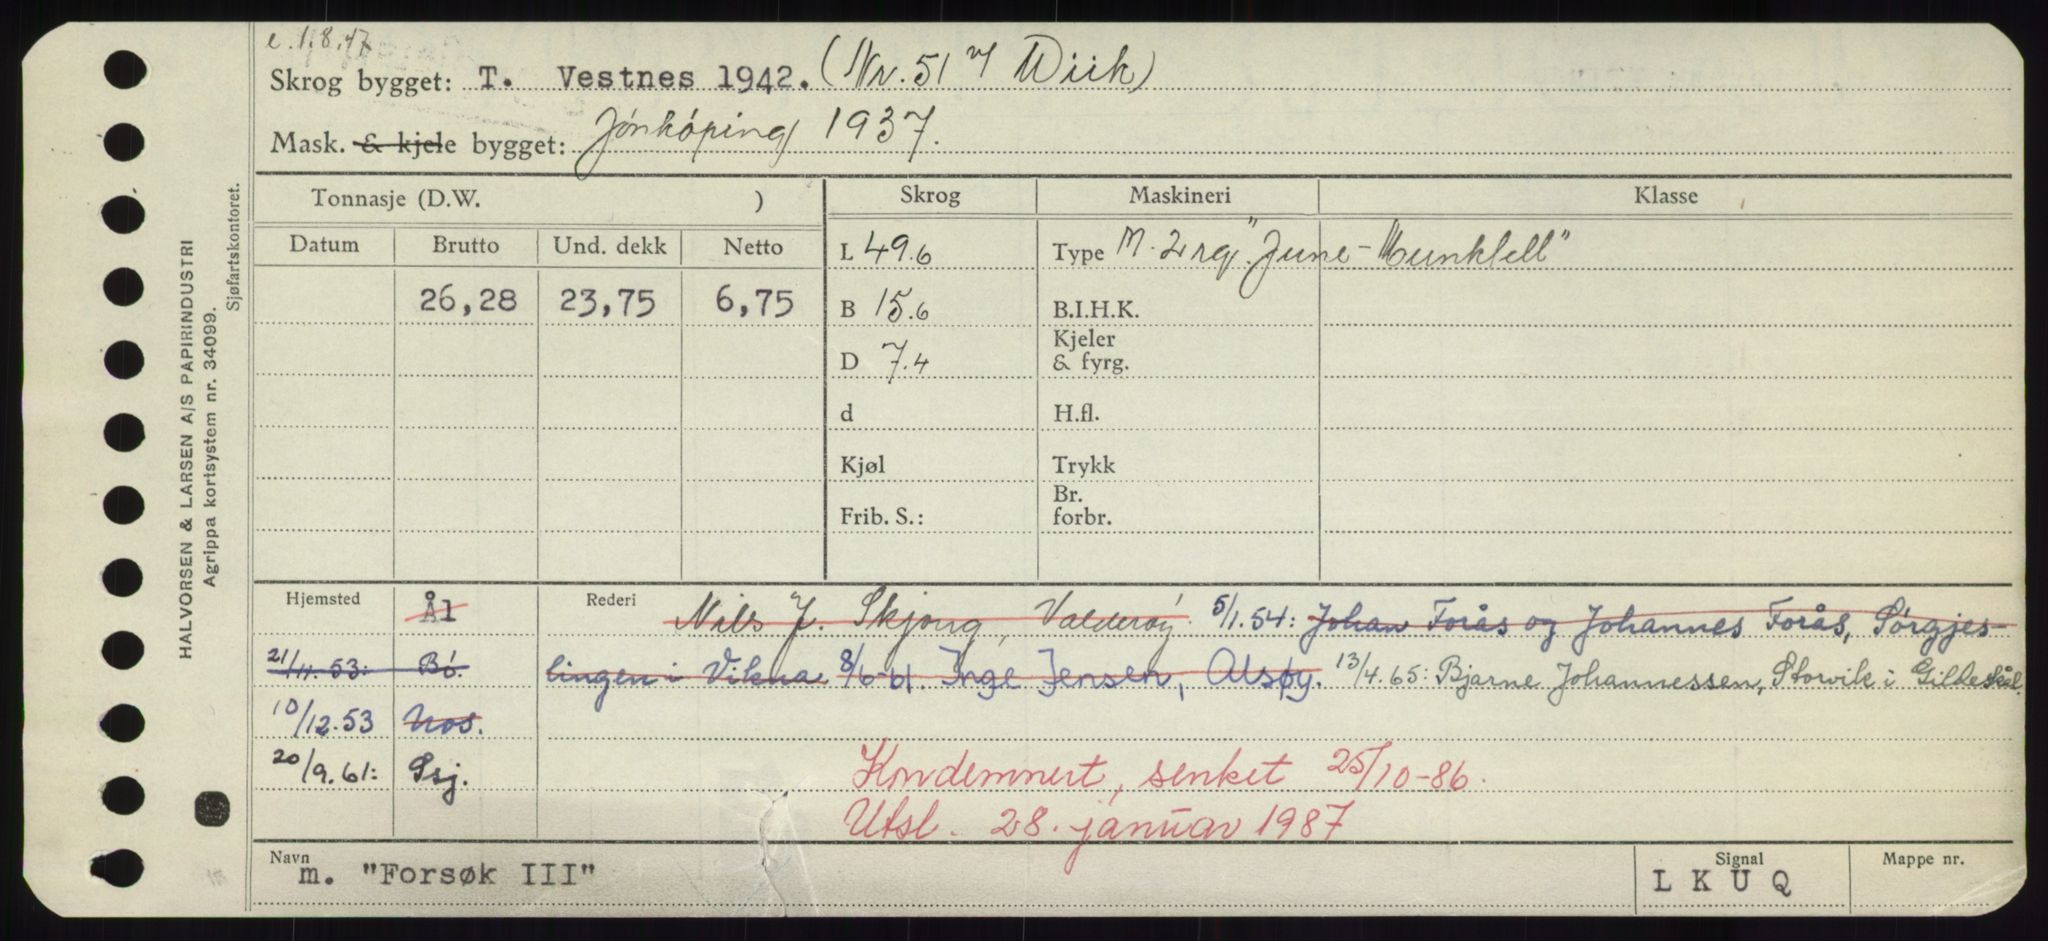 e. 1.8.47
Skrog bygget: T. Vestnes 1942. (Nr. 51 v/ Wiik)
Mask. & kjele bygget: Jönköping 1937.
Tonnasje (D.W. ) Skrog Maskineri Klasse
Datum Brutto Und. dekk Netto L 49.6 Type M. 2 rq. "June-Munktell"
26,28 23,75 6,75 B 15.6 B.I.H.K.
D 7.4 Kjeler & fyrg.
d H.fl.
Kjøl Trykk
Frib. S.: Br. forbr.
Hjemsted Ål Rederi Nils J. Skjong, Valderøy 5/1.54: Johan Forås og Johannes Forås, Sørgjes-
21/11.53: Bó. lingen i Vikna 8/6-61. Inge Jensen, Alsøy. 13/4.65: Bjarne Johannessen, Storvik i Gildeskål.
10/12.53 Nos.
20/9.61: Ssj. Kondemnert, senket 25/10-86.
Utsl. 28. januar 1987
Navn m. "Forsøk III" Signal LKUQ Mappe nr.
HALVORSEN & LARSEN A/S PAPIRINDUSTRI
Agrippa kortsystem nr. 34099.
Sjøfartskontoret.